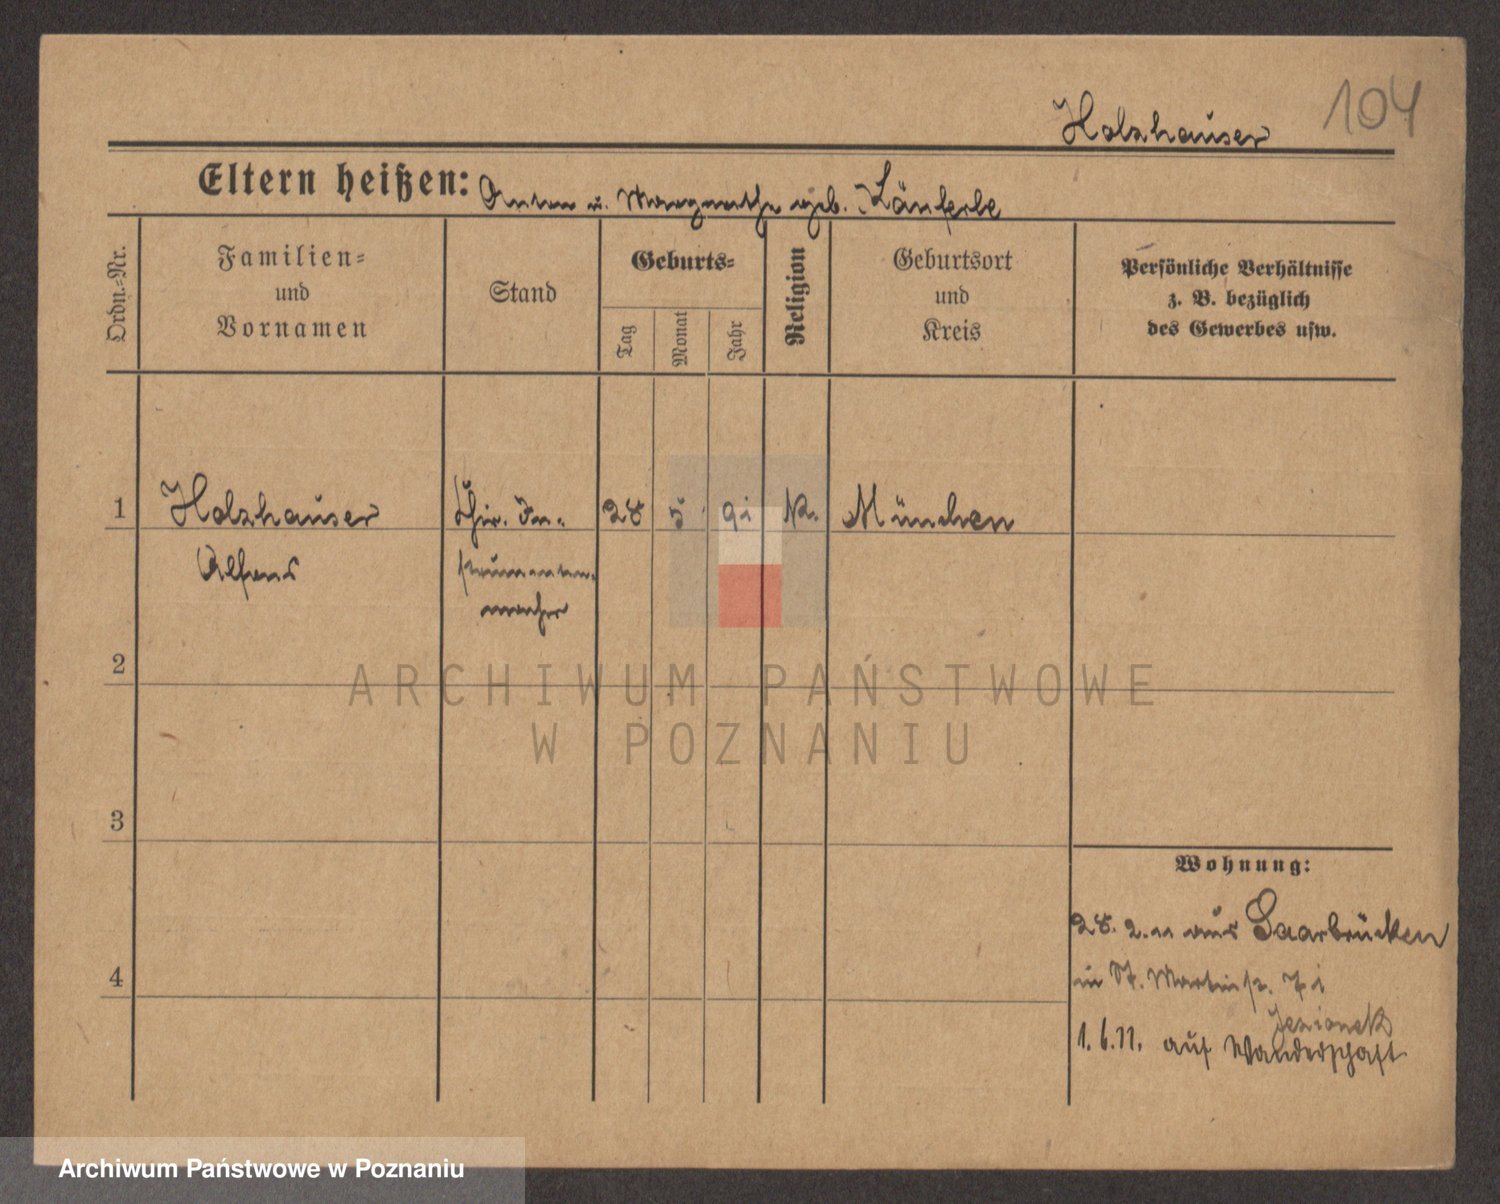 Holzhauser 104
Eltern heißen: Anton u. Margarethe geb.
Ordn.-Nr.
Familien-
und
Vornamen
Stand
Geburts-
Tag
Monat
Jahr
Religion
Geburtsort
und
Kreis
Persönliche Verhältnisse
z. B. bezüglich
des Gewerbes usw.
1 Holzhauser Chir. In- 28 5 91 K. München
Alfons strumenten-
macher
2
ARCHIWUM PAŃSTWOWE
W POZNANIU
3
Wohnung:
28. 2. 11 aus Saarbrücken
4
in St. Martinstr. 71
Jezionek
1. 6. 11. auf Wanderschaft
Archiwum Państwowe w Poznaniu